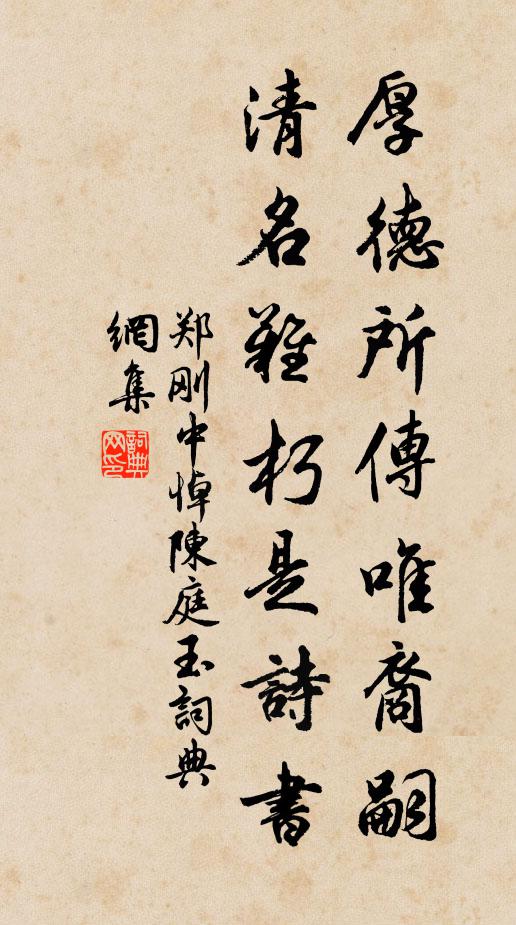 厚德所傳唯裔嗣
清名難朽是詩書
郑刚中悼陳庭玉詞典
網集
詞典
网印